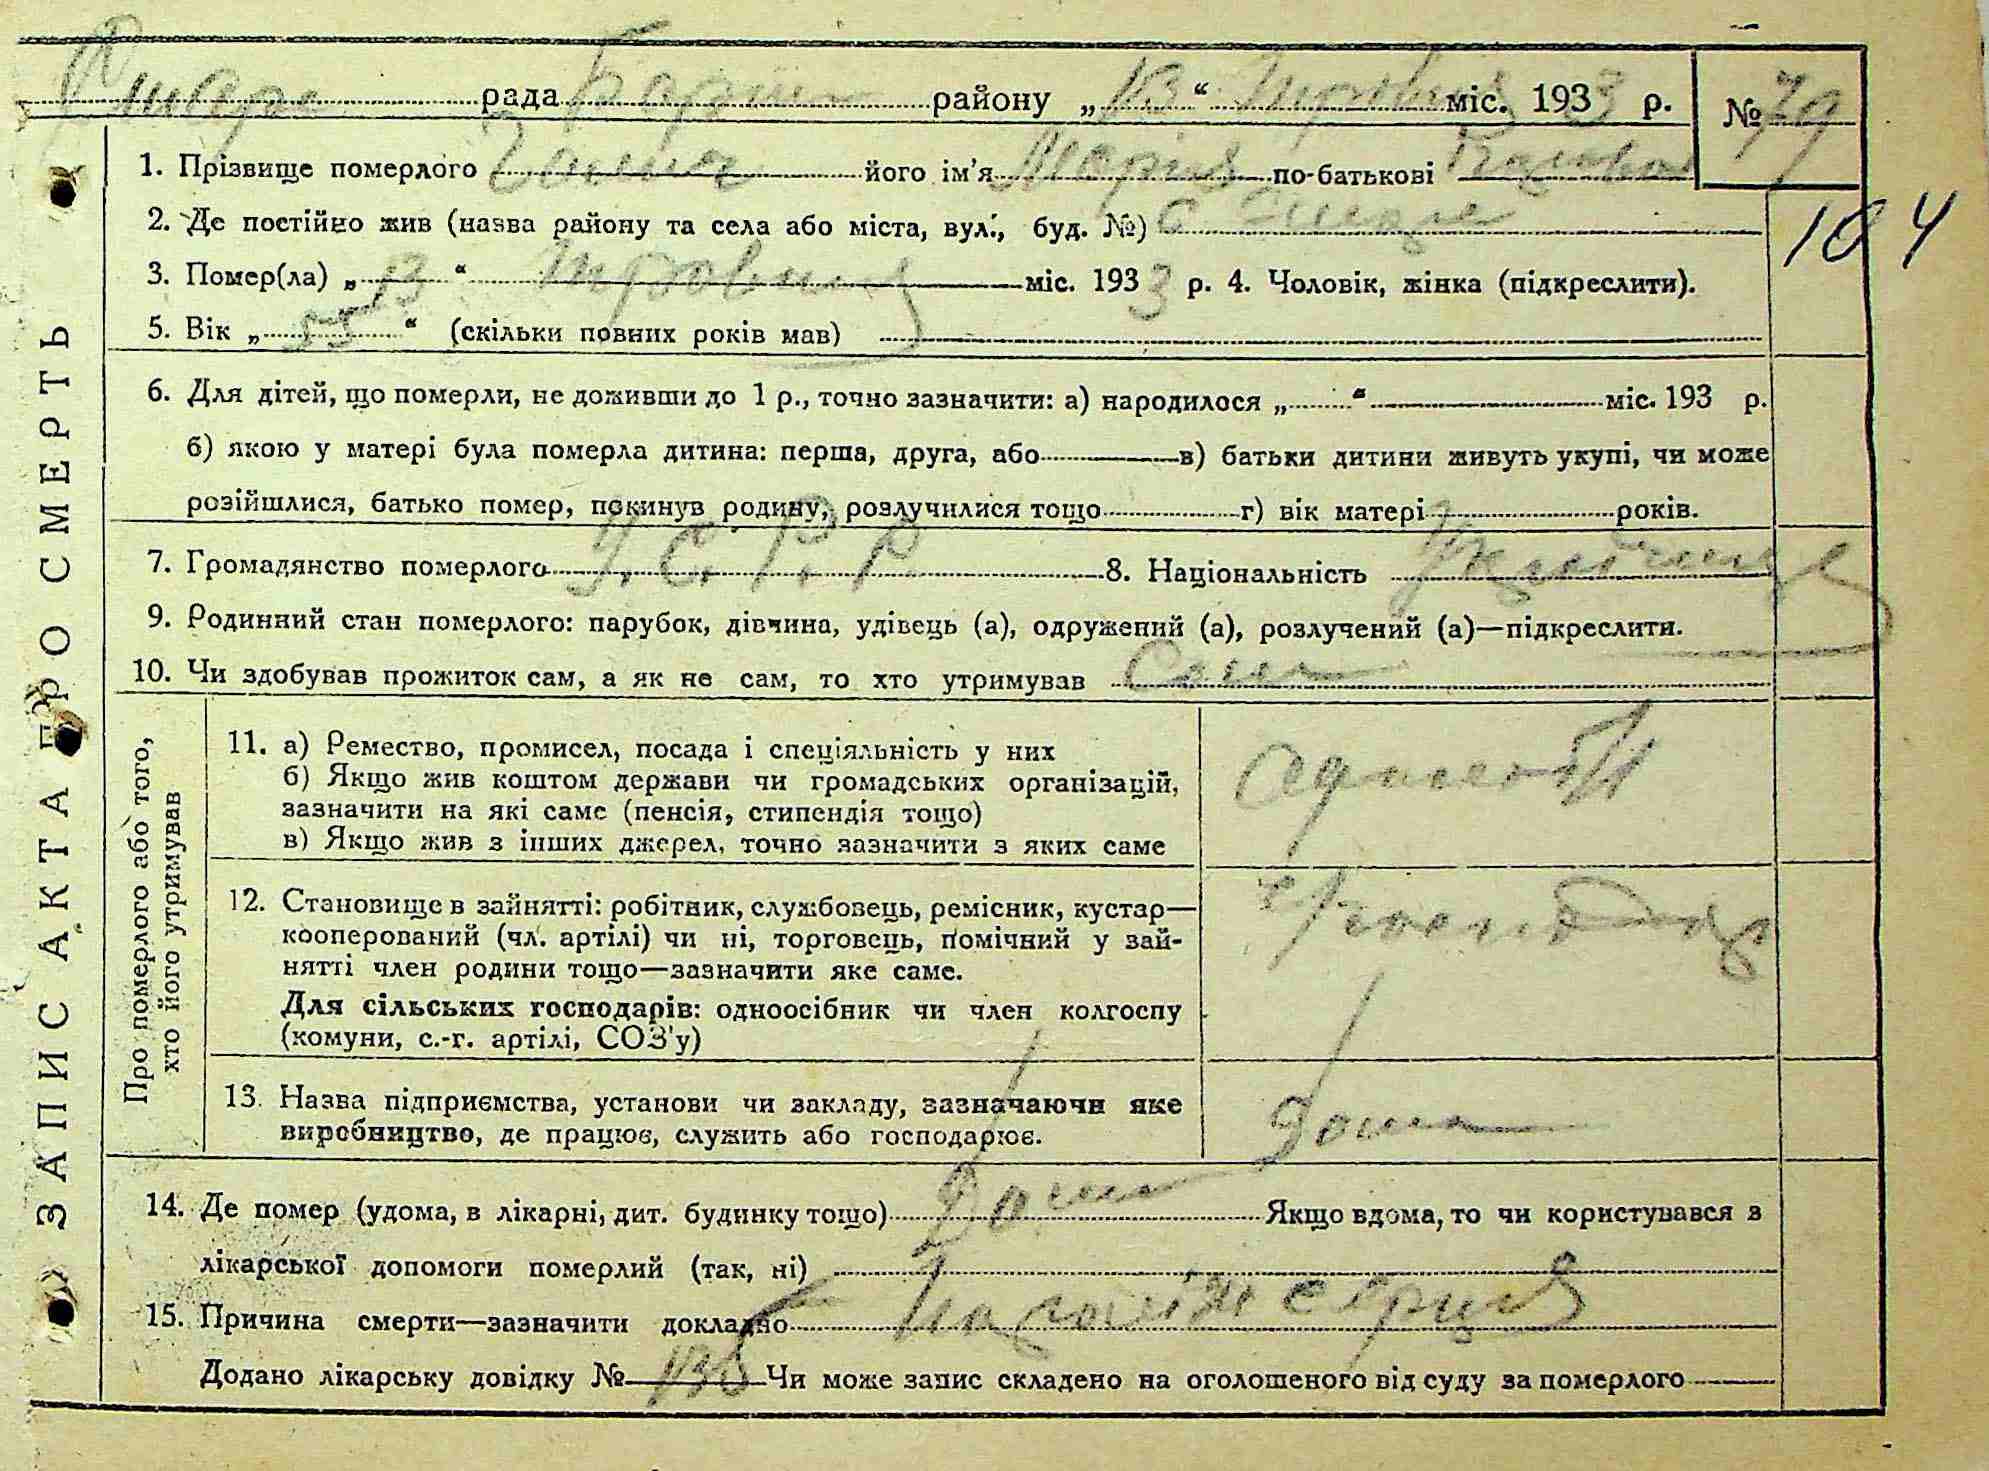 рада район у „13“ міс. 1933 р. № 79
1. Прізвище померлого його ім’я Марія по-батькові
104
2. Де постійно жив (назва району та села або міста, вул., буд. №) с.
3. Помер(ла) „13“ травня міс. 1933 р. 4. Чоловік, жінка (підкреслити).
5. Вік „55“ (скільки повних років мав)
6. Для дітей, що померли, не доживши до 1 р., точно зазначити: а) народилося „ “ міс. 193 р.
б) якою у матері була померла дитина: перша, друга, або в) батьки дитини живуть укупі, чи може
розійшлися, батько помер, покинув родину, розлучилися тощо г) вік матері років.
7. Громадянство померлого У.С.Р.Р. 8. Національність
9. Родинний стан померлого: парубок, дівчина, удівець (а), одружений (а), розлучений (а)—підкреслити.
10. Чи здобував прожиток сам, а як не сам, то хто утримував Сама
ЗАПИС АКТА ПРО СМЕРТЬ
Про померлого або того,
хто його утримував
11. а) Ремество, промисел, посада і спеціяльність у них
б) Якщо жив коштом держави чи громадських організацій,
зазначити на які саме (пенсія, стипендія тощо)
в) Якщо жив з інших джерел, точно зазначити з яких саме
12. Становище в зайнятті: робітник, службовець, ремісник, кустар—
кооперований (чл. артілі) чи ні, торговець, помічний у зай-
нятті член родини тощо—зазначити яке саме.
Для сільських господарів: одноосібник чи член колгоспу
(комуни, с.-г. артілі, СОЗ'у)
13. Назва підприємства, установи чи закладу, зазначаючи яке
виробництво, де працює, служить або господарює.
дома
14. Де помер (удома, в лікарні, дит. будинку тощо) дома Якщо вдома, то чи користувався з
лікарської допомоги померлий (так, ні)
15. Причина смерти—зазначити докладно
Додано лікарську довідку № Чи може запис складено на оголошеного від суду за померлого